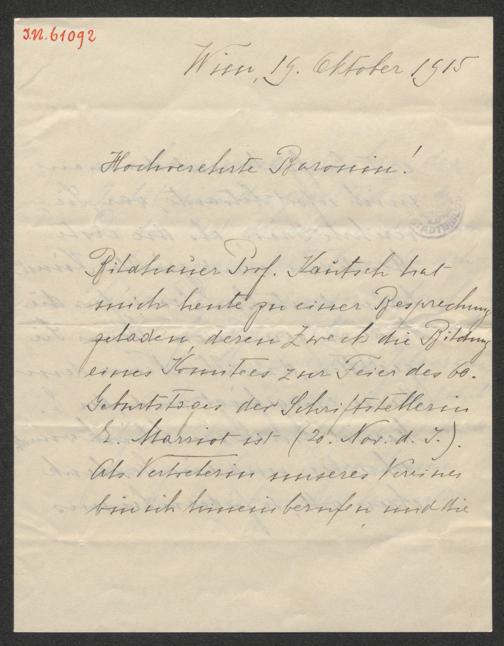 I.N. 61092
Wien, 19. Oktober 1915
Hochverehrte Baronin!
Bildhauer Prof. Kautsch hat
mich heute zu einer Besprechung
geladen, deren Zweck die Bildung
eines Komitees zur Feier des 60.
Geburtstages der Schriftstellerin
E. Marriot ist (20. Nov. d. J.).
Als Vertreterin unseres Vereines
bin ich hineinberufen und die